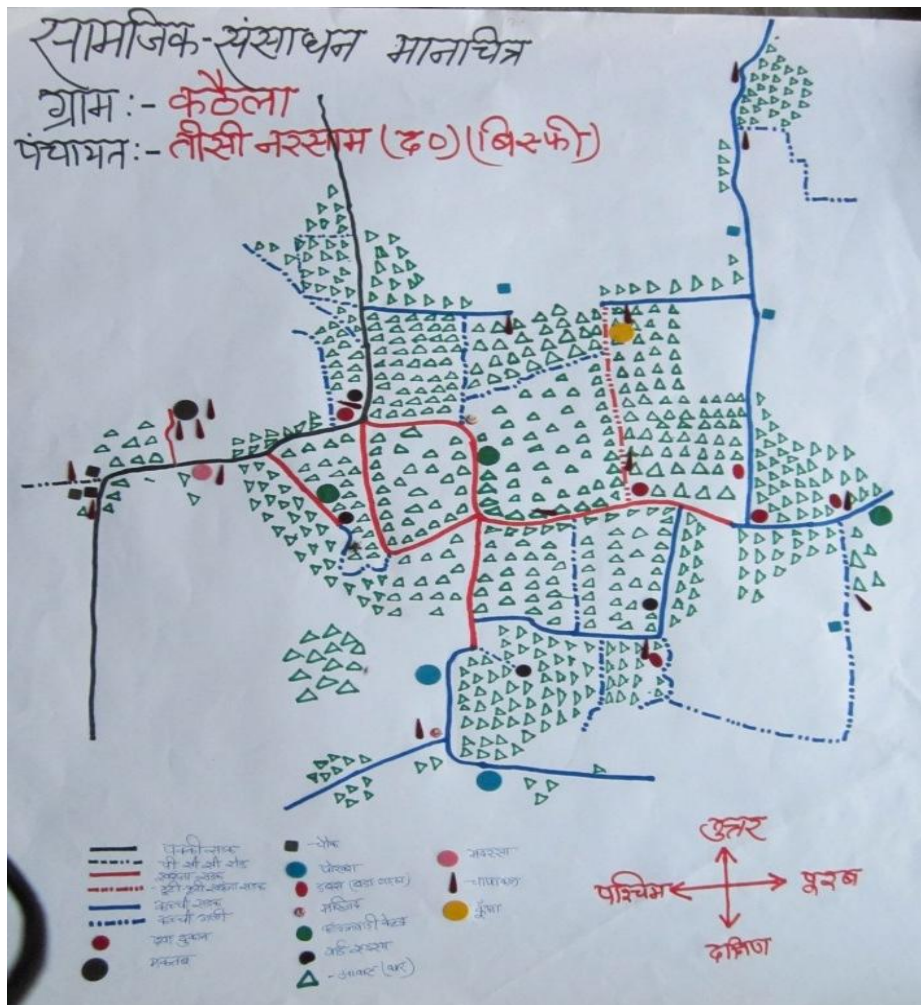 सामजिक-संसाधन मानचित्र
ग्राम:- कठैला
पंचायत:- तीसी नरसाम (द०) (बिस्फी)
पक्की सड़क
पी सी सी रोड
खरंजा सड़क
कच्ची सड़क
कच्ची गली
दवा दुकान
मकतब
-चौक
पोखरा
मस्जिद
आंगनबाड़ी केन्द्र
वार्ड सदस्य
मदरसा
-चापाकल
कुँआ
उत्तर
पश्चिम
पूरब
दक्षिण